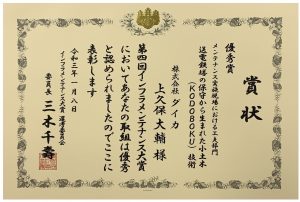 賞状
優秀賞
メンテナンス実施現場における工夫部門
送電鉄塔の保守から生まれた小土木
(KODOBOKU)技術
株式会社 ダイカ
上久保大輔 様
第四回インフラメンテナンス大賞
においてあなたの取組は優秀
と認められましたのでここに
表彰します
令和三年一月八日
インフラメンテナンス大賞 選考委員会
委員長 三木千壽